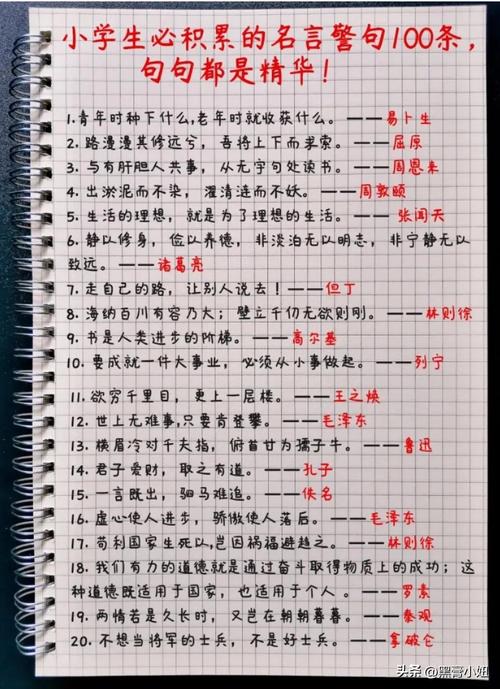 小学生必积累的名言警句100条，
句句都是精华！
1.青年时种下什么,老年时就收获什么。——易卜生
2. 路漫漫其修远兮，吾将上下而求索。——屈原
3. 与有肝胆人共事，从无字句处读书。——周恩来
4. 出淤泥而不染，濯清涟而不妖。——周敦颐
5. 生活的理想，就是为了理想的生活。—— 张闻天
6. 静以修身，俭以养德，非淡泊无以明志，非宁静无以
致远。——诸葛亮
7. 走自己的路，让别人说去！——但丁
8. 海纳百川有容乃大；壁立千仞无欲则刚。——林则徐
9. 书是人类进步的阶梯。——高尔基
10. 要成就一件大事业，必须从小事做起。——列宁
11. 欲穷千里目，更上一层楼。——王之焕
12. 世上无难事,只要肯登攀。——毛泽东
13. 横眉冷对千夫指，俯首甘为孺子牛。——鲁迅
14. 君子爱财，取之有道。——孔子
15. 一言既出，驷马难追。——佚名
16. 虚心使人进步，骄傲使人落后。——毛泽东
17. 苟利国家生死以,岂因祸福避趋之。——林则徐
18. 我们有力的道德就是通过奋斗取得物质上的成功；这
种道德既适用于国家，也适用于个人。——罗素
19. 两情若是久长时，又岂在朝朝暮暮。——秦观
20. 不想当将军的士兵，不是好士兵。——拿破仑
头条 @黑膏小妞